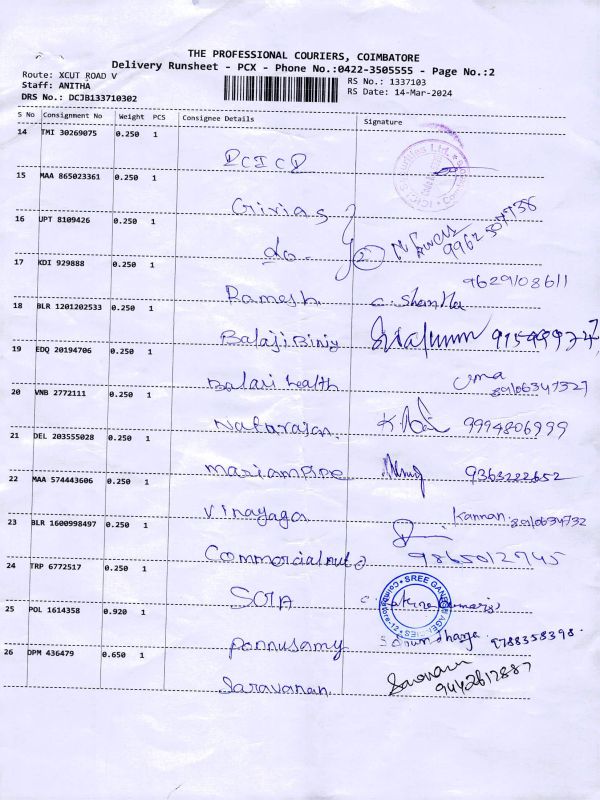 THE PROFESSIONAL COURIERS, COIMBATORE
Delivery Runsheet - PCX - Phone No.:0422-3505555 - Page No.:2
Route: XCUT ROAD V
RS No.: 1337103
Staff: ANITHA
RS Date: 14-Mar-2024
DRS No.: DCJB133710302
S No Consignment No Weight PCS Consignee Details Signature
14 TMI 30269075 0.250 1
DCICD
15 MAA 865023361 0.250 1
16 UPT 8109426 0.250 1
do. 2 9962507738
17 KDI 929888 0.250 1
9629108611
Ramesh
18 BLR 1201202533 0.250 1
Balaji Biniy
19 EDQ 20194706 0.250 1
uma
Balaji health 89106347327
20 VNB 2772111 0.250 1
Natarajan. 9994806999
21 DEL 203555028 0.250 1
mariampipe 9363222652
22 MAA 574443606 0.250 1
Vinayaga Kannan
23 BLR 1600998497 0.250 1
Commercial 9865012745
24 TRP 6772517 0.250 1
25 POL 1614358 0.920 1
Ponnusamy 9788358398
26 DPM 436479 0.650 1
Saravanan. 9442617887